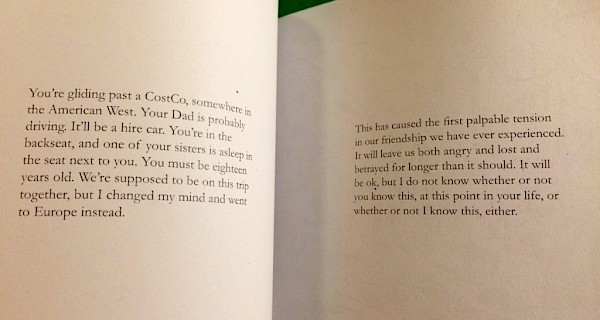 You're gliding past a CostCo, somewhere in
the American West. Your Dad is probably
driving. It'll be a hire car. You're in the
backseat, and one of your sisters is asleep in
the seat next to you. You must be eighteen
years old. We're supposed to be on this trip
together, but I changed my mind and went
to Europe instead.
This has caused the first palpable tension
in our friendship we have ever experienced.
It will leave us both angry and lost and
betrayed for longer than it should. It will
be ok, but I do not know whether or not
you know this, at this point in your life, or
whether or not I know this, either.